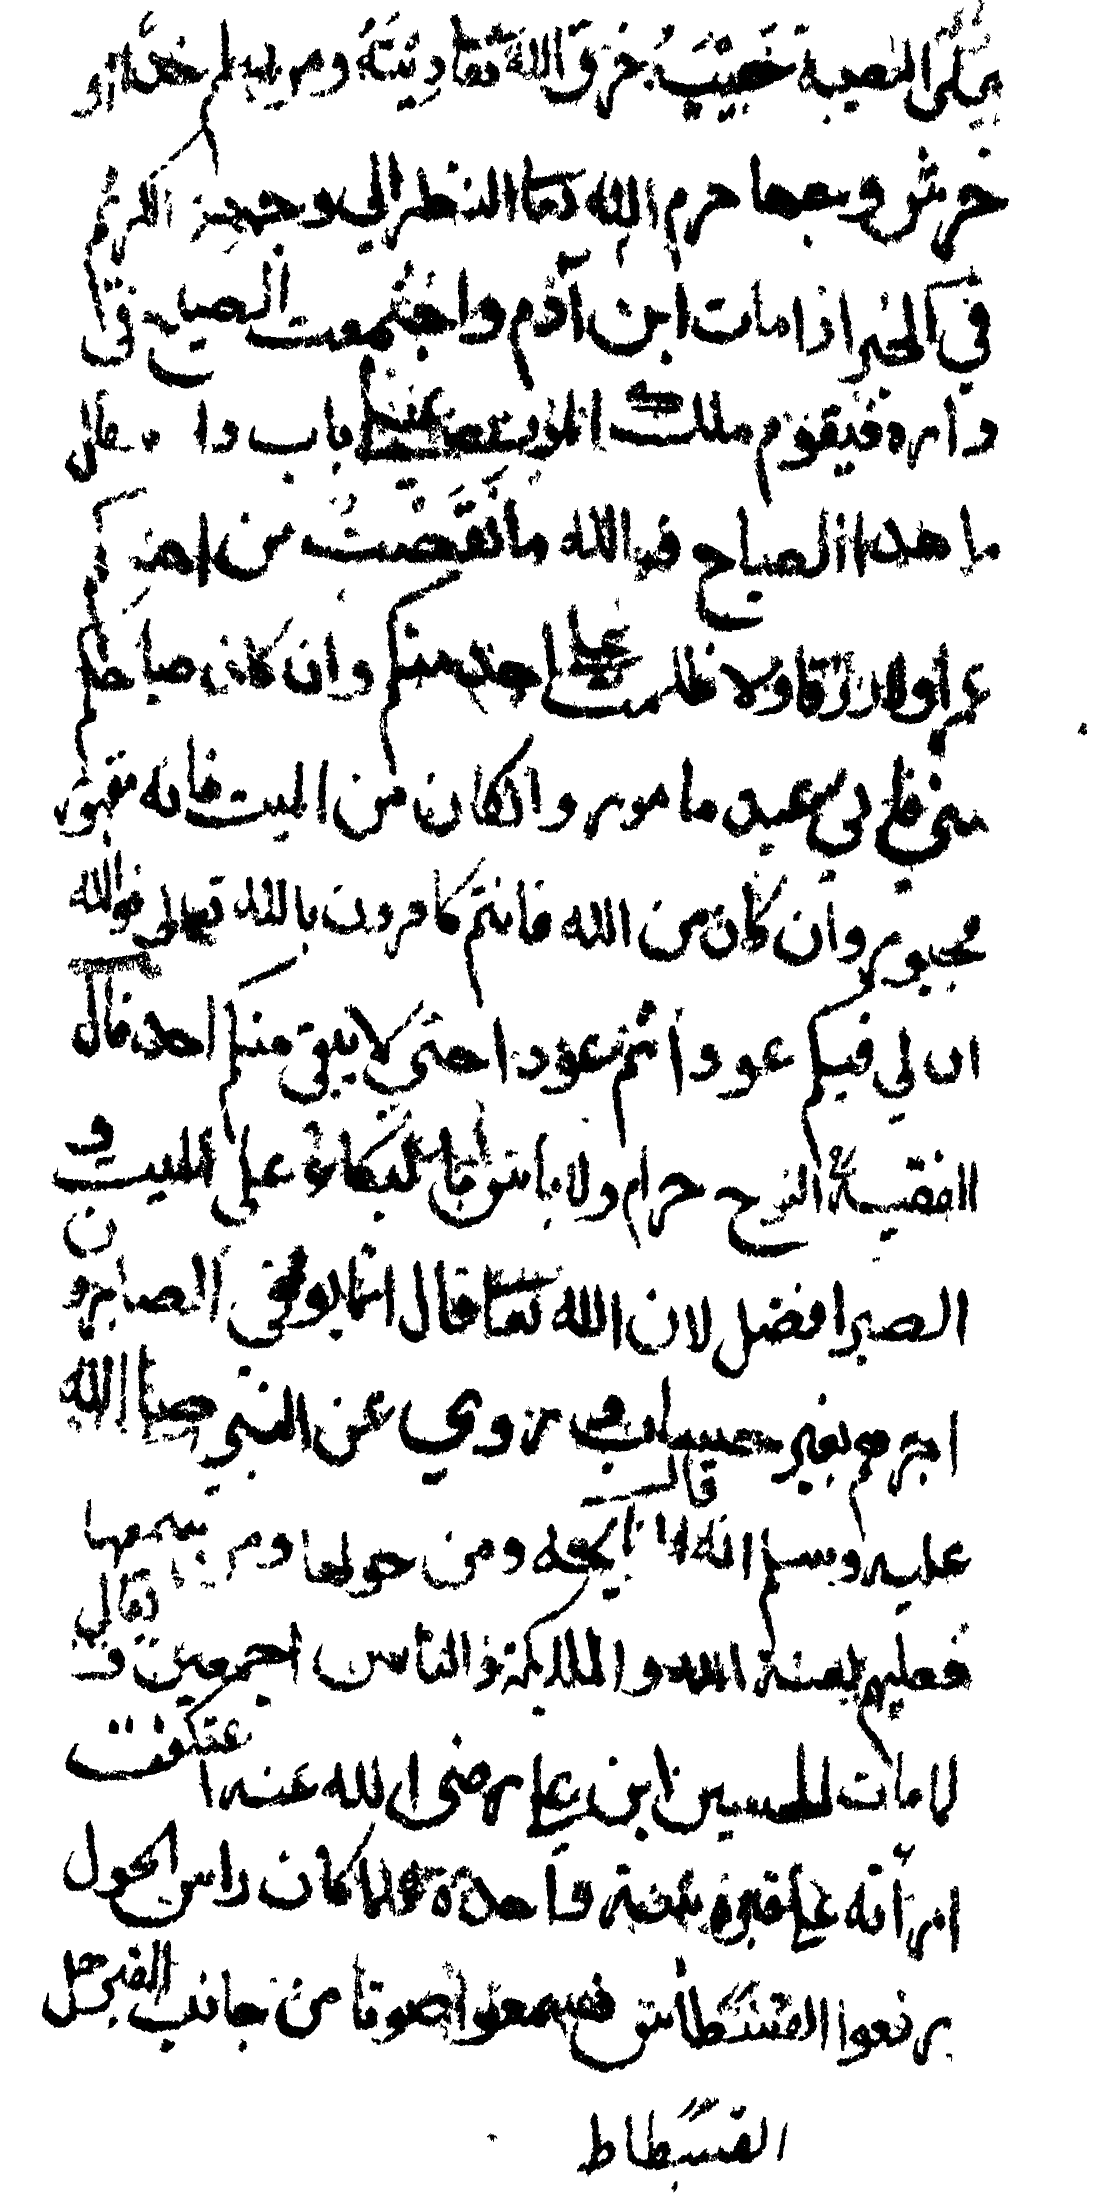 على المصيبة خرق الله تعا دينه ومن يلطم خده او
خرش وجهها حرم الله تعا النظر الي وجهه الكريم
في الخبر اذا مات ابن آدم واجتمعت الصياح في
داره فيقوم ملك الموت عند باب دا فقال
ما هذا الصياح فوالله ما نقصت من احد كم
عمرا ولا رزقا ولا ظلمت على احد منكم وان كان صياحكم
مني فاني عبد مامور وانكان من الميت فانه مقهور
مجبور وان كان من الله فانتم كافرون بالله تعالى فوالله
ان لي فيكم عود وانتم عودا حتى لا يبقى منكم احد قال
الفقيه النوح حرام ولا باس البكاء على الميت و
الصبر افضل لان الله تعا قال انما يوفى الصابرون
اجرهم بغير حساب و روي عن النبي صلى الله
عليه وسلم انه قال ومن حولها ومن يسمعها
فعليهم لعنة الله والملائكة والناس اجمعين و يقال
لا مات الحسين ابن علي رضى الله عنه اعتكفت
امرأته على قبره سنة واحدة فلما كان راس الحول
رفعوا الفسطاس فسمعوا صوتا من جانب القبر هل
الفسطاط